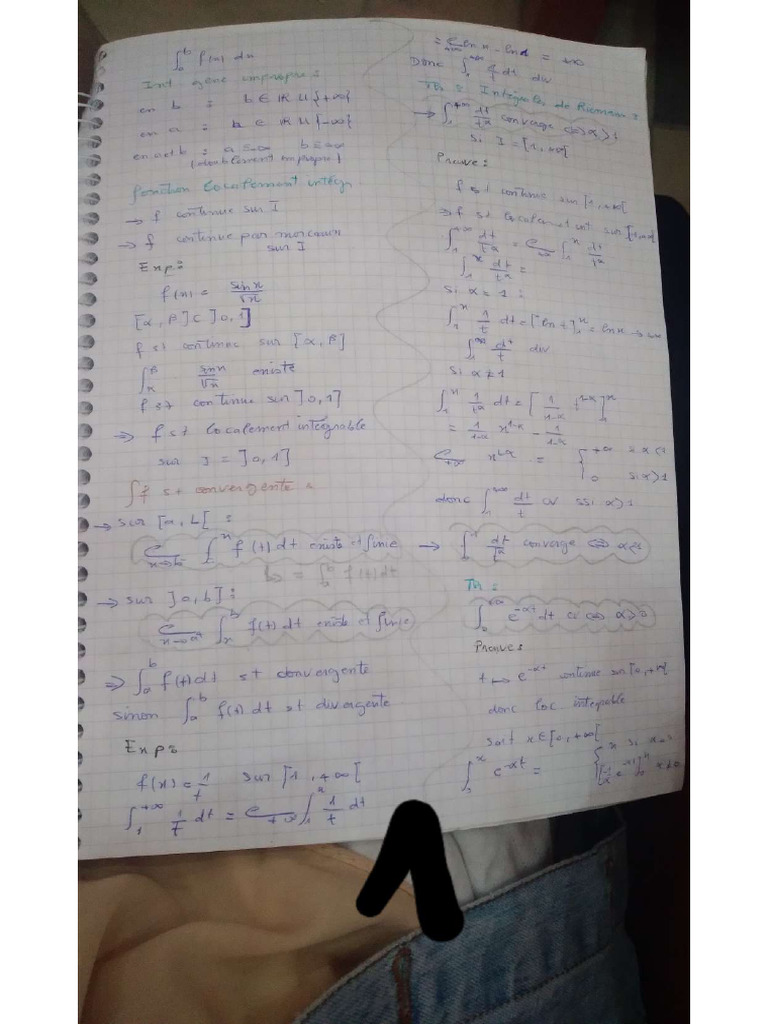 ∫_a^b f(x) dx
Int gene impropre :
en b : b ∈ ℝ ∪ {+∞}
en a : a ∈ ℝ ∪ {-∞}
en a et b : a = -∞ b = +∞
(doublement impropre)
fonction localement intégr
→ f continue sur I
→ f continue par morceaux
sur I
Exp :
f(x) = sin x / √x
[α, β] ⊂ ]0, 1]
f st continue sur [α, β]
∫_α^β sin x / √x existe
f st continue sur ]0, 1]
⇒ f st localement intégrable
sur I = ]0, 1]
∫f st convergente :
→ sur [a, b[ :
x→b⁻ ∫_a^x f(t) dt existe et finie
= ∫_a^b f(t) dt
→ sur ]a, b] :
x→a⁺ ∫_x^b f(t) dt existe et finie
⇒ ∫_a^b f(t) dt st convergente
sinon ∫_a^b f(t) dt st divergente
Exp :
f(x) = 1/t sur [1, +∞[
∫_1^{+∞} 1/t dt = ℓ_{+∞} ∫_1^x 1/t dt
= ℓ_{+∞} ln x - ln 1 = +∞
Donc ∫_1^{+∞} 1/t dt div
Th : Intégrales de Riemann :
→ ∫_1^{+∞} dt/t^α converge ⇔ α > 1
si I = [1, +∞[
Preuve :
f st continue sur [1, +∞[
⇒ f st localement int sur [1, +∞[
∫_1^{+∞} dt/t^α = ℓ_{+∞} ∫_1^x dt/t^α
∫_1^x dt/t^α =
si α = 1 :
∫_1^x 1/t dt = [ln t]_1^x = ln x → +∞
∫_1^{+∞} dt/t div
si α ≠ 1
∫_1^x 1/t^α dt = [1/(1-α) t^{1-α}]_1^x
= 1/(1-α) x^{1-α} - 1/(1-α)
ℓ_{+∞} x^{1-α} = { +∞ si α < 1
0 si α > 1
donc ∫_1^{+∞} dt/t cv ssi α > 1
→ ∫_0^1 dt/t^α converge ⇔ α < 1
Th :
∫_0^{+∞} e^{-αt} dt cv ⇔ α > 0
Preuve :
t ↦ e^{-αt} continue sur [0, +∞[
donc loc integrable
soit x ∈ [0, +∞[
∫_0^x e^{-αt} = { x si α = 0
[-1/α e^{-αt}]_0^x α ≠ 0
1